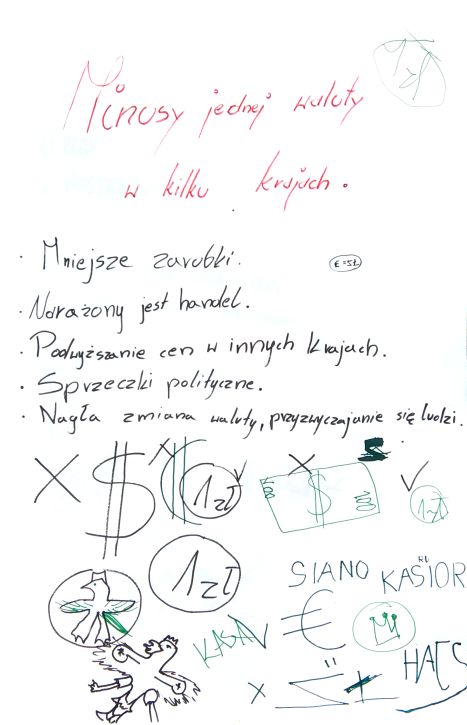 1 zł
Minusy jednej waluty
w kilku krajach.
· Mniejsze zarobki.
€=5zł
· Narażony jest handel.
· Podwyższanie cen w innych krajach.
· Sprzeczki polityczne.
· Nagła zmiana waluty, przyzwyczajanie się ludzi.
$ 1 zł
100 $ 100
1 zł
1 zł
SIANO KASIOR
€
HAJS